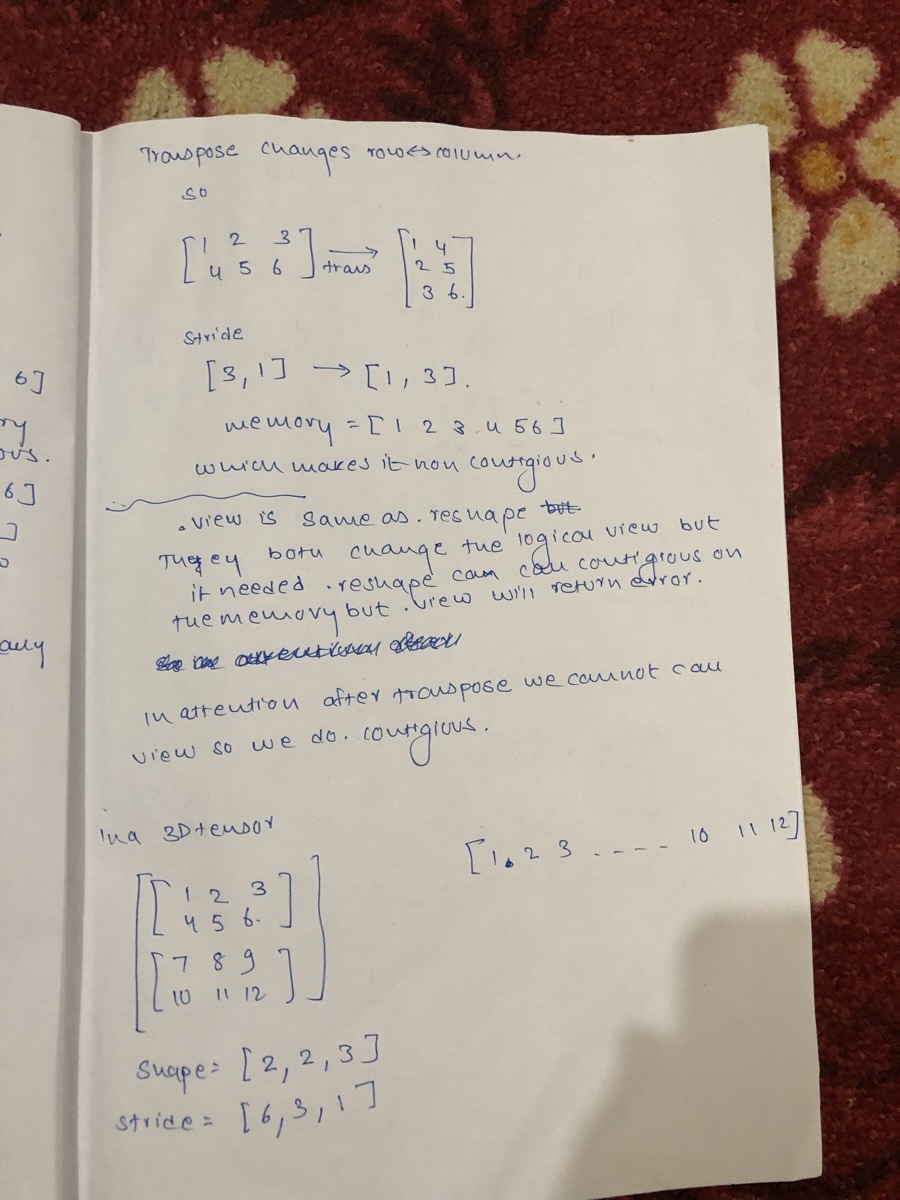 Transpose changes row↔column.
so
[1 2 3
4 5 6] → trans [1 4
2 5
3 6.]
stride
[3, 1] → [1, 3].
memory = [1 2 3 4 5 6]
which makes it non contigious.
.view is same as .reshape but
They both change the logical view but
if needed .reshape can call contigious on
the memory but .view will return error.
In attention after transpose we cannot call
view so we do. contigious.
In a 3D tensor
[1. 2 3 ---- 10 11 12]
[[1 2 3
4 5 6.]
[7 8 9
10 11 12]]
Shape= [2, 2, 3]
stride = [6, 3, 1]
6]
ry
ous.
6]
]
ally